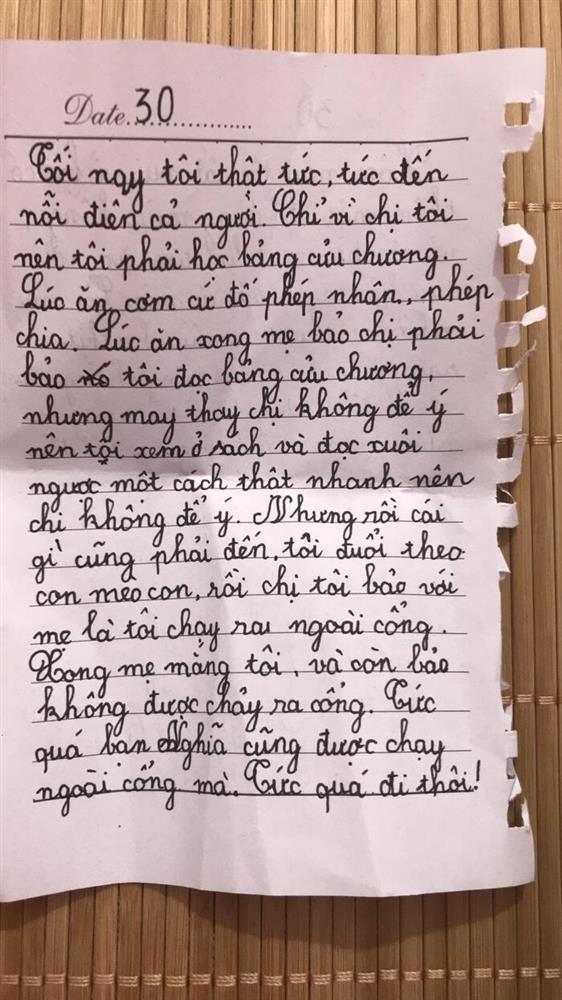 Date.30
Tối nay tôi thật tức, tức đến
nỗi điên cả người. Chỉ vì chị tôi
nên tôi phải học bảng cửu chương.
Lúc ăn cơm cứ đố phép nhân, phép
chia. Lúc ăn xong mẹ bảo chị phải
bảo tôi đọc bảng cửu chương,
nhưng may thay chị không để ý
nên tôi xem ở sách và đọc xuôi
ngược một cách thật nhanh nên
chị không để ý. Nhưng rồi cái
gì cũng phải đến, tôi đuổi theo
con mèo con, rồi chị tôi bảo với
mẹ là tôi chạy ra ngoài cổng.
Xong mẹ mắng tôi, và còn bảo
không được chạy ra cổng. Tức
quá bạn Nghĩa cũng được chạy
ngoài cổng mà. Tức quá đi thôi!